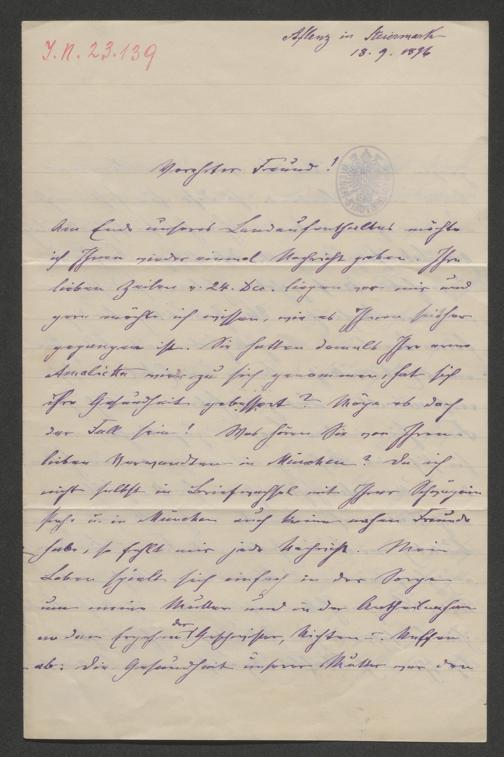 J.N. 23.139
Aflenz in Steiermark
18. 9. 1896
Verehrter Freund!
Am Ende unseres Landaufenthaltes möchte
ich Ihnen wieder einmal Nachricht geben. Ihre
lieben Zeilen v. 24. Dec. liegen vor mir und
gern möchte ich wissen, wie es Ihnen seither
gegangen ist. Sie hatten damals Ihre arme
zu sich genommen, hat sich
ihre Gesundheit gebessert? Möge es doch
der Fall sein! Was hören Sie von Ihren
lieben Verwandten in München? Da ich
nicht selbst in Briefwechsel mit Ihrer Schwägerin
stehe u. in München auch keine nahen Freunde
habe, so fehlt mir jede Nachricht. Mein
Leben spielt sich einfach in der Sorge
um meine Mutter und in der Antheilnahme
an dem Ergehen der Geschwister, Nichten u. Neffen
ab. Die Gesundheit unserer Mutter war den